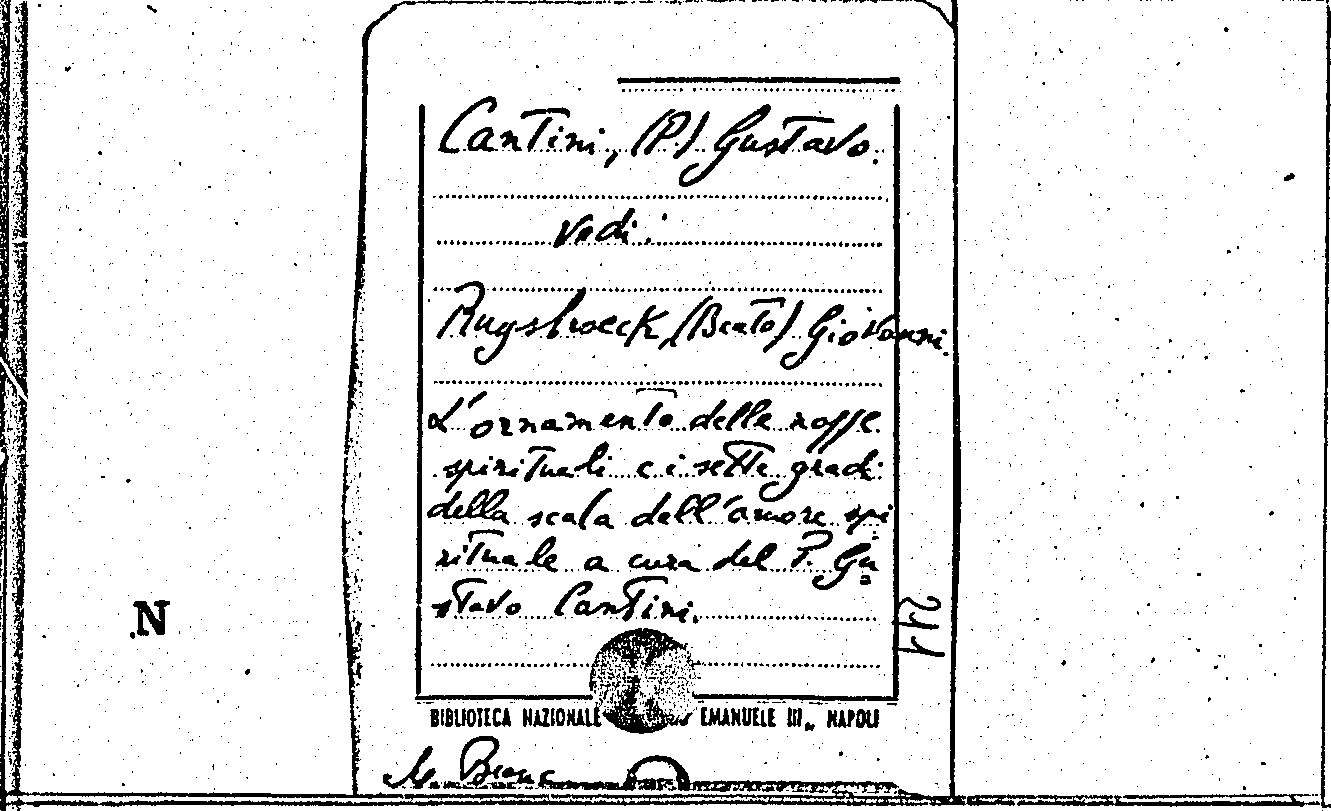 Cantini, (P) Gustavo.
vedi:
Ruysbroeck, (Beato) Giovanni.
L'ornamento delle nozze
spirituali e i sette gradi
della scala dell'amore spi
rituale a cura del P. Gu
stavo Cantini.
N
BIBLIOTECA NAZIONALE EMANUELE III„ NAPOLI